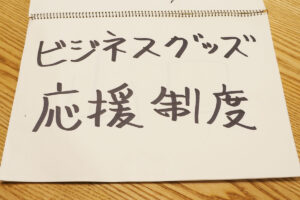 ビジネスグッズ
応援制度